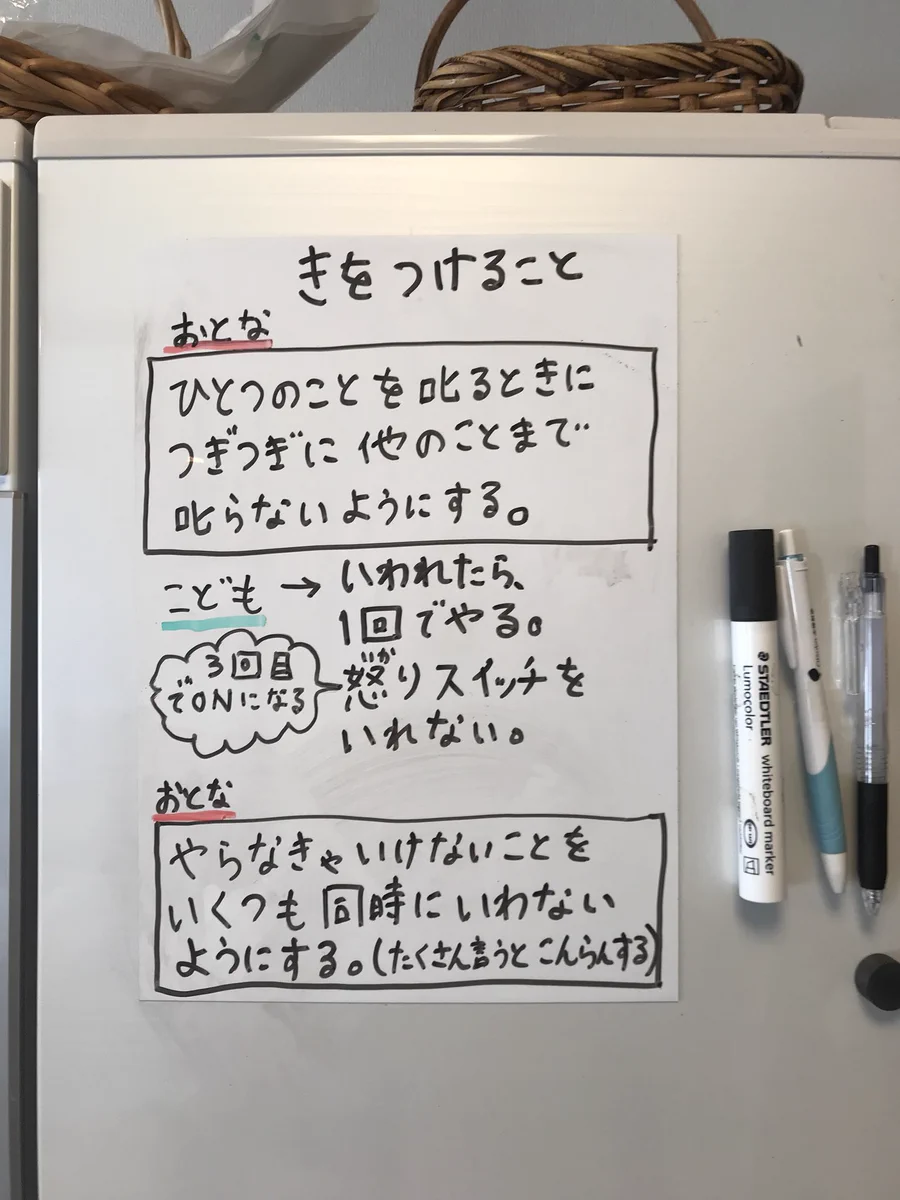 きをつけること
おとな
ひとつのことを叱るときに
つぎつぎに他のことまで
叱らないようにする。
こども → いわれたら、
1回でやる。
3回目
でONになる
いか
怒りスイッチを
いれない。
おとな
やらなきゃいけないことを
いくつも同時にいわない
ようにする。(たくさん言うとこんらんする)
STAEDTLER whiteboard marker
Lumocolor